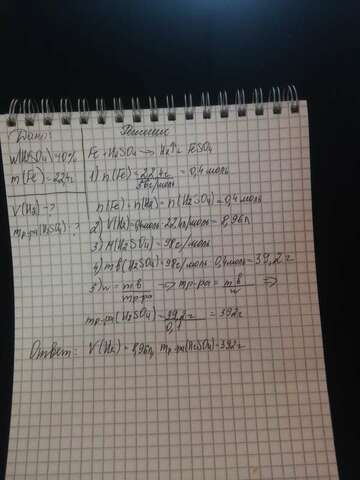 Дано:
Решение
w(H2SO4) 10%
m(Fe) = 22,4г
V(H2) - ?
mр-ра(H2SO4) - ?
Fe + H2SO4 → H2↑ + FeSO4
1) n(Fe) = 22,4г / 56г/моль = 0,4 моль
n(Fe) = n(H2) = n(H2SO4) = 0,4 моль
2) V(H2) = 0,4моль · 22,4л/моль = 8,96л
3) M(H2SO4) = 98г/моль
4) mв(H2SO4) = 98г/моль · 0,4моль = 39,2г
5) w = mв / mр-ра => mр-ра = mв / w =>
mр-ра(H2SO4) = 39,2г / 0,1 = 392г
Ответ: V(H2) = 8,96л, mр-ра(H2SO4) = 392г